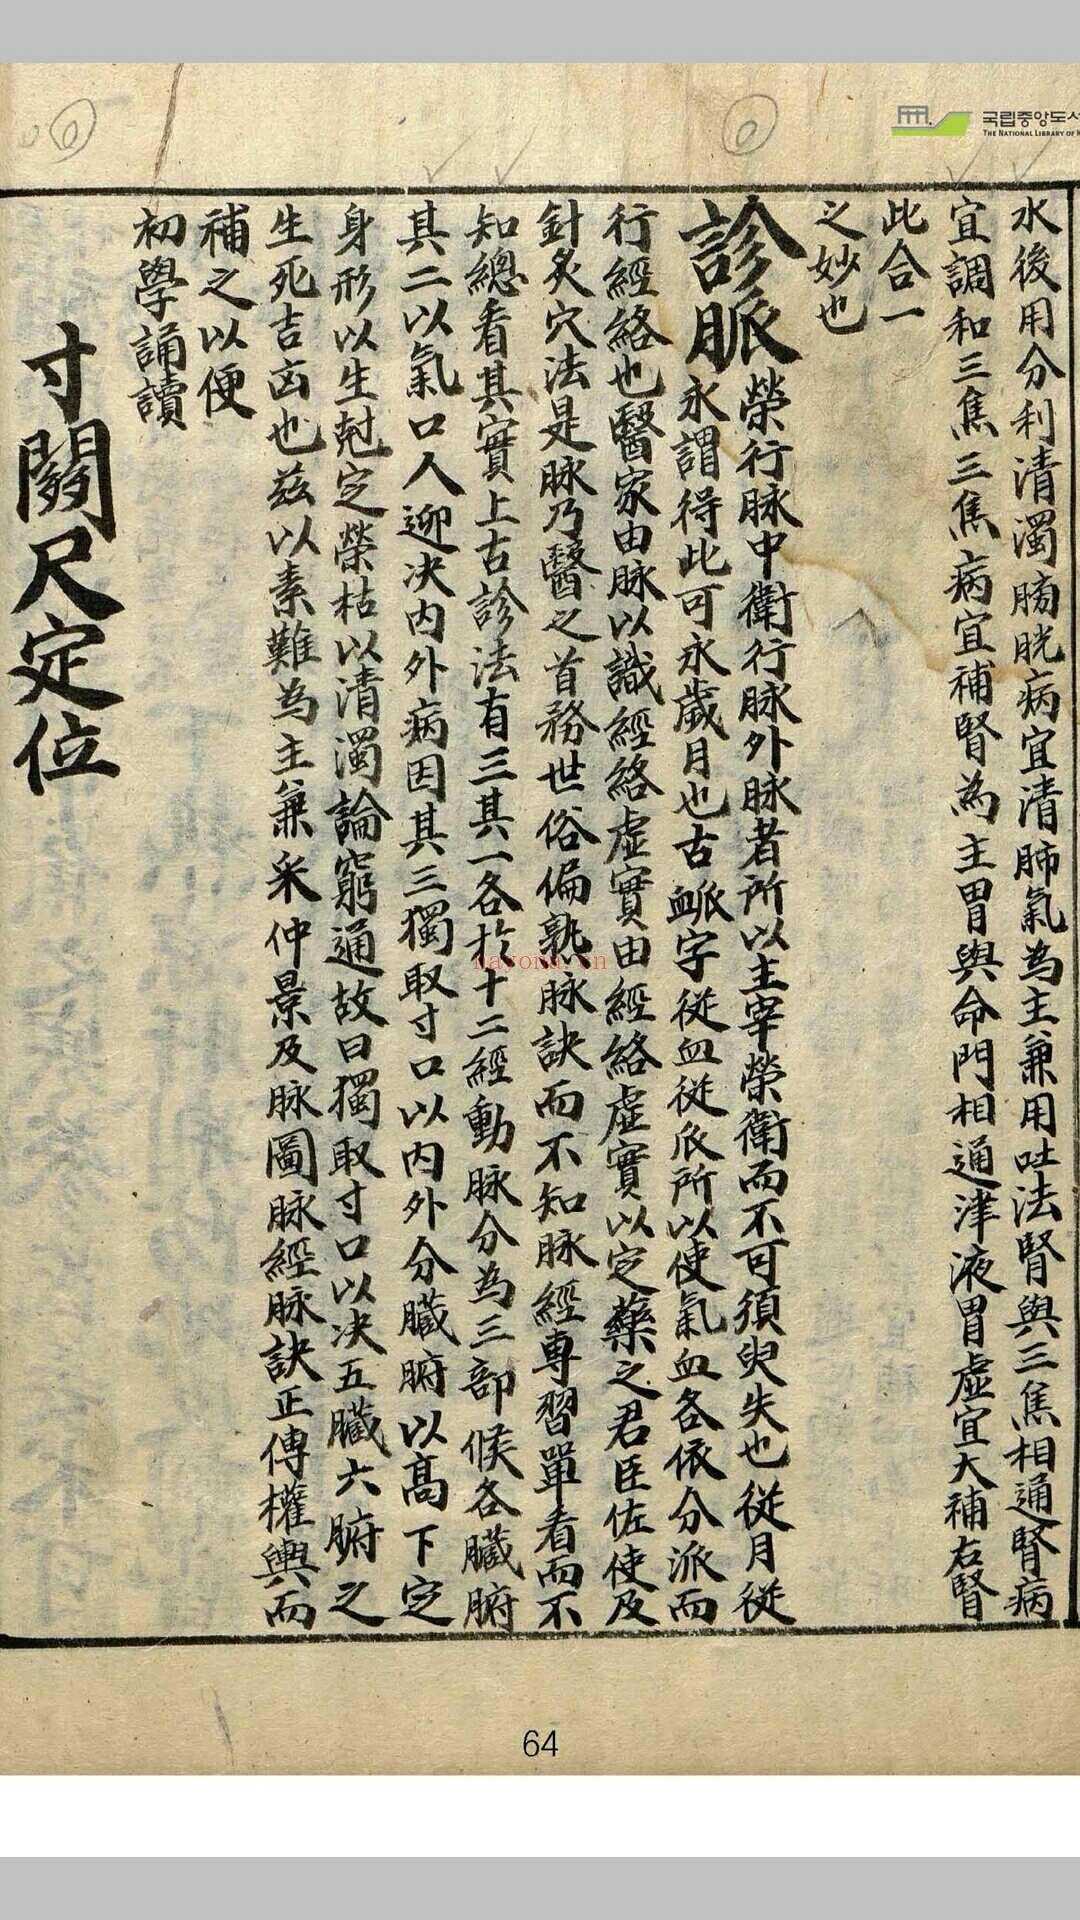 국립중앙도서
THE NATIONAL LIBRARY OF K
水後用分利清濁膀胱病宜清肺氣為主兼用吐法腎與三焦相通腎病
宜調和三焦三焦病宜補腎為主胃與命門相通津液胃虛宜大補右腎
此合一
之妙也
診脈
榮行脉中衛行脉外脉者所以主宰榮衛而不可須臾失也從月從
永謂得此可永歲月也古䘑字從血從𠂢所以使氣血各依分派而
行經絡也醫家由脉以識經絡虛實由經絡虛實以定藥之君臣佐使及
針炙穴法是脉乃醫之首務世俗偏熟脉訣而不知脉經專習單看而不
知總看其實上古診法有三其一各於十二經動脉分為三部候各臟腑
其二以氣口人迎决內外病因其三獨取寸口以內外分臟腑以高下定
身形以生尅定榮枯以清濁論窮通故曰獨取寸口以决五臟六腑之
生死吉凶也玆以素難為主兼采仲景及脉圖脉經脉訣正傳權輿而
補之以便
初學誦讀
寸關尺定位
nayona.cn
64